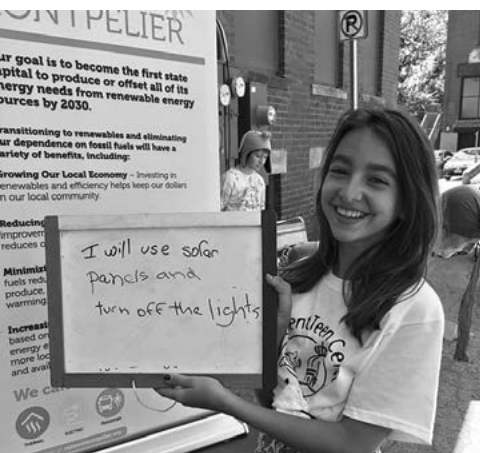 ONTPELIER
ur goal is to become the first state
apital to produce or offset all of its
nergy needs from renewable energy
ources by 2030.
ransitioning to renewables and eliminating
ur dependence on fossil fuels will have a
ariety of benefits, including:
Growing Our Local Economy – Investing in
renewables and efficiency helps keep our dollars
in our local community.
Reducing
improvem
reduces
Minimizi
fuels redu
produce,
warming
Increasi
based on
energy e
more loc
and avai
We can
THERMAL
ELECTRIC
I will use solar
panels and
turn off the lights
entTeen Cen
P